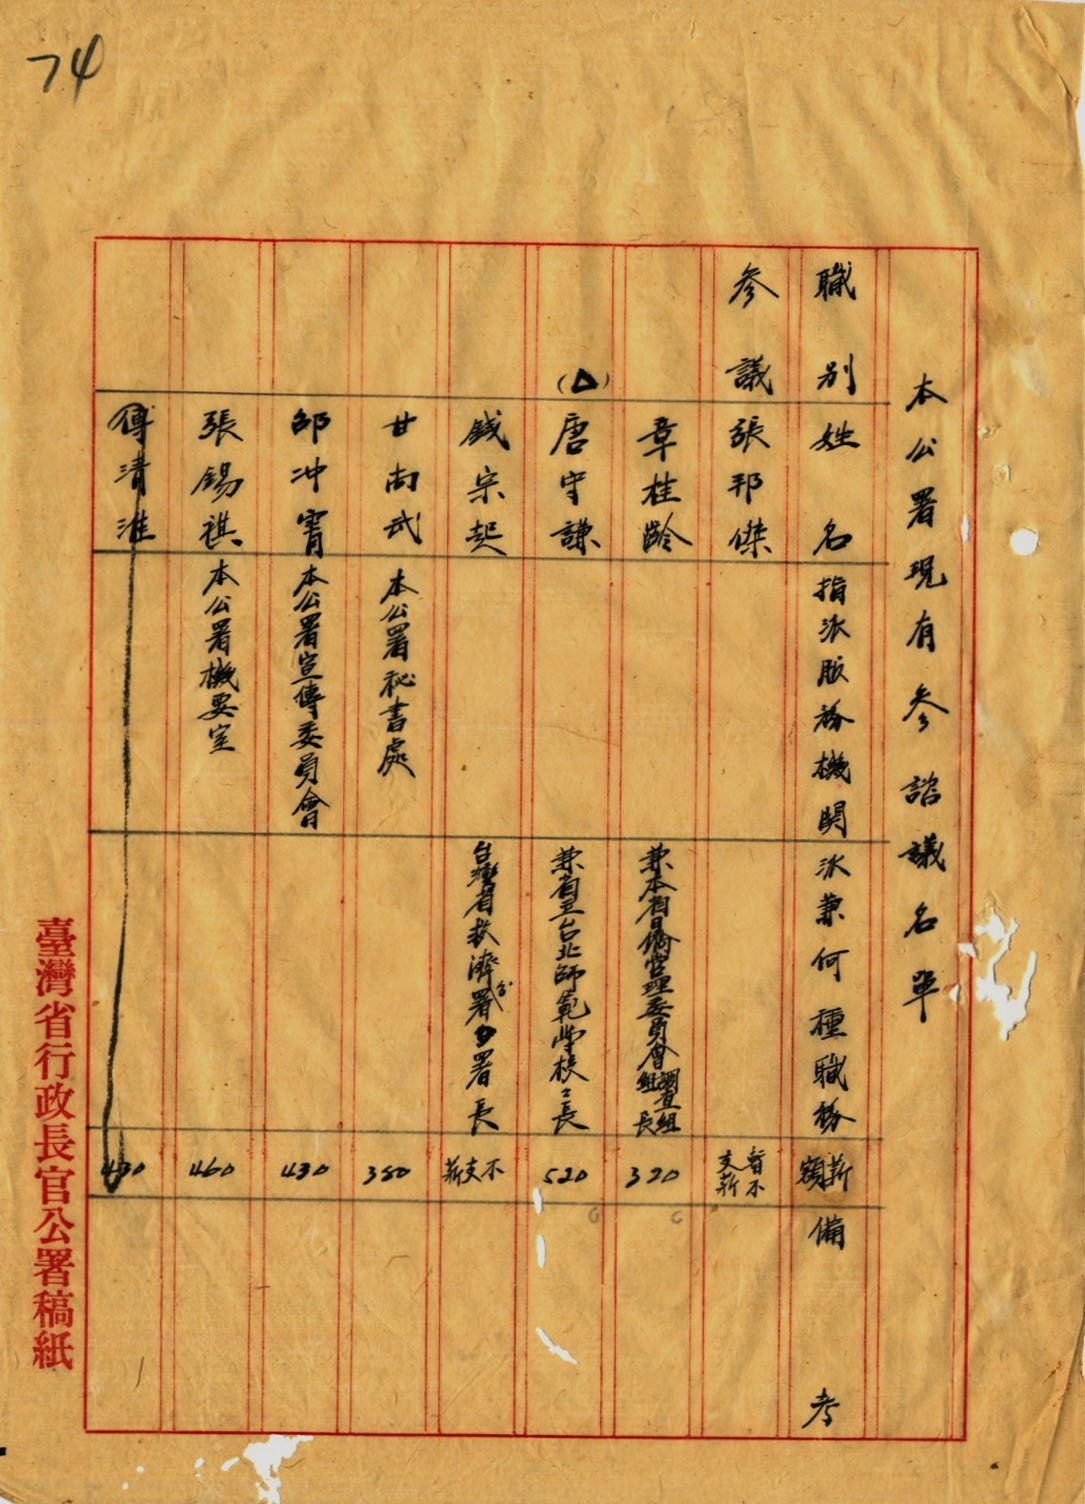 74
本公署現有參諮議名單
職別 姓名 指派服務機関 派兼何種職務 薪額 備考
參議 張邦傑 暫不支薪
章桂齡 兼本省日僑管理委員會調查組組長 320
(△) 唐守謙 兼省立台北師範學校々長 520
錢宗起 台灣省救濟署分署長 不支薪
甘雨武 本公署秘書處 380
邵冲霄 本公署宣傳委員會 430
張錫祺 本公署機要室 460
傅清淮 430
臺灣省行政長官公署稿紙